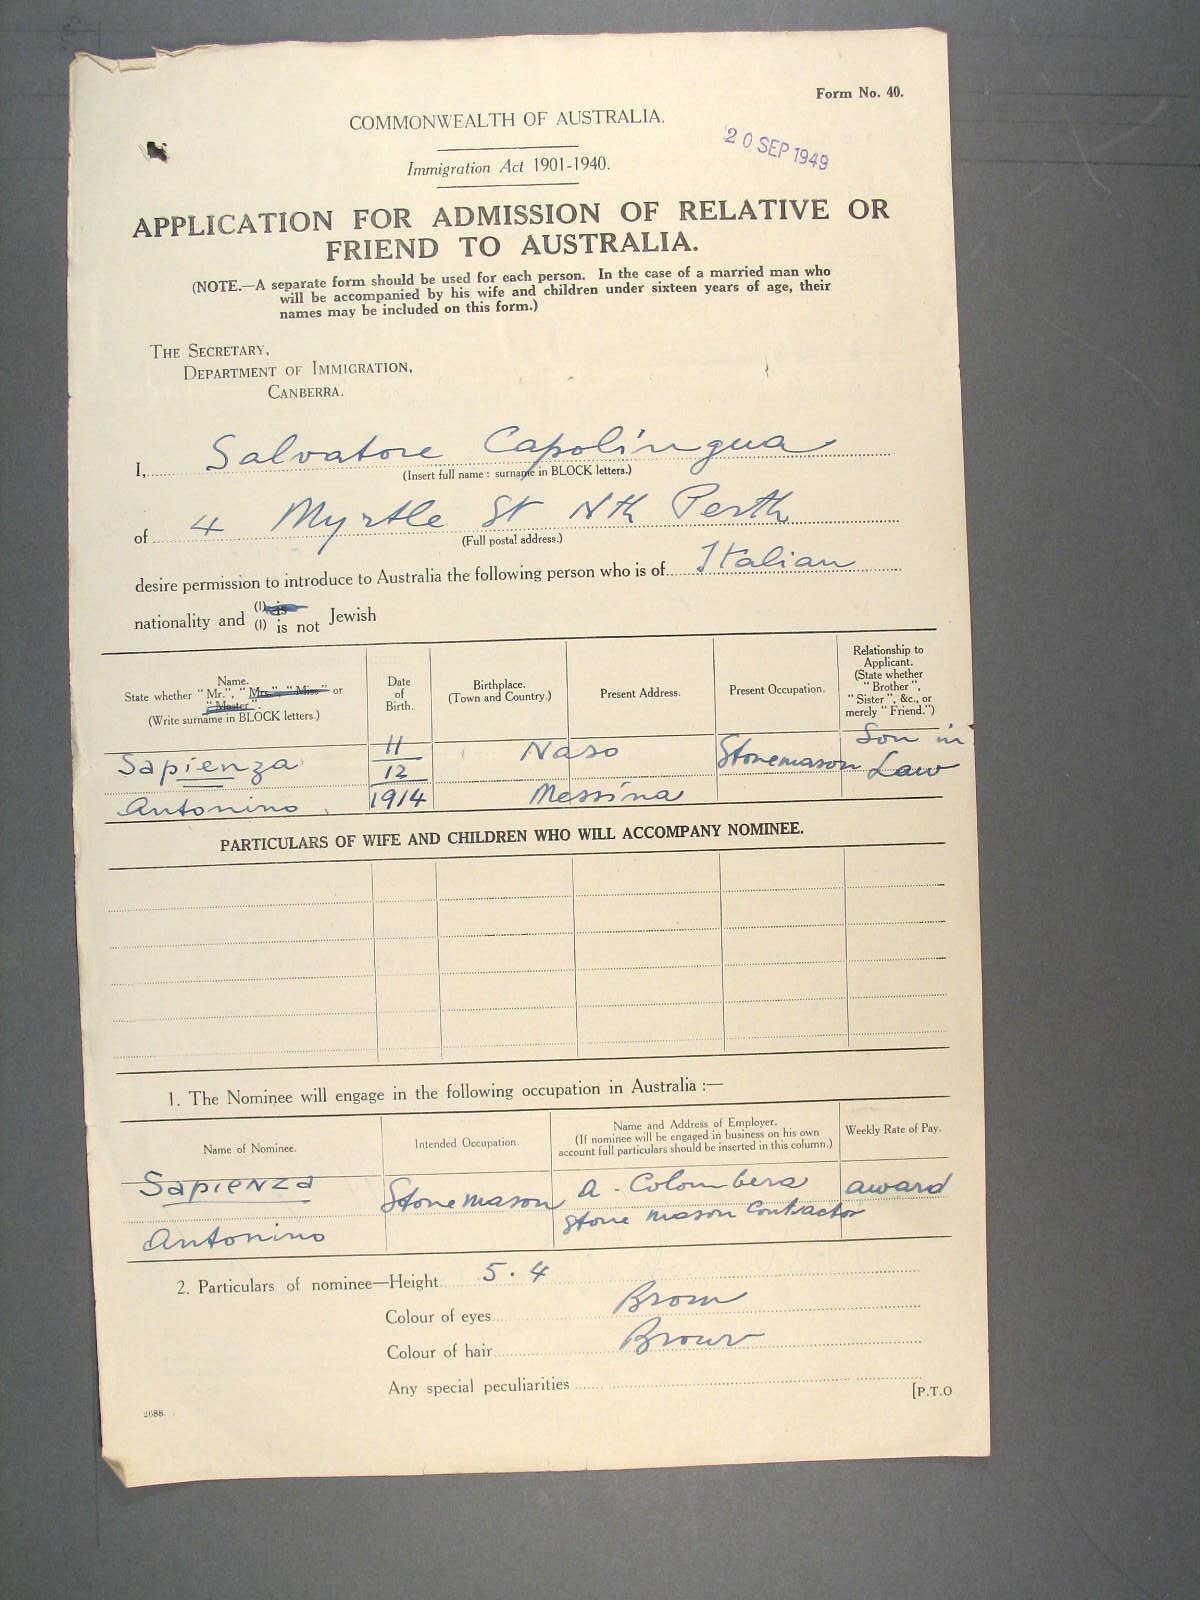 Form No. 40.
COMMONWEALTH OF AUSTRALIA.
20 SEP 1949
Immigration Act 1901-1940.
APPLICATION FOR ADMISSION OF RELATIVE OR
FRIEND TO AUSTRALIA.
(NOTE.—A separate form should be used for each person. In the case of a married man who
will be accompanied by his wife and children under sixteen years of age, their
names may be included on this form.)
THE SECRETARY,
DEPARTMENT OF IMMIGRATION,
CANBERRA.
I, Salvatore Capolingua
(Insert full name : surname in BLOCK letters.)
of 4 Myrtle St Nth Perth
(Full postal address.)
desire permission to introduce to Australia the following person who is of Italian
nationality and (1) is
(1) is not Jewish
Name.
State whether "Mr.", "Mrs.", "Miss" or
"Master".
(Write surname in BLOCK letters.)
Date
of
Birth.
Birthplace.
(Town and Country.)
Present Address.
Present Occupation.
Relationship to
Applicant.
(State whether
"Brother",
"Sister", &c., or
merely "Friend.")
Sapienza
Antonino
11
12
1914
Naso
Messina
Stonemason
Son in
Law
PARTICULARS OF WIFE AND CHILDREN WHO WILL ACCOMPANY NOMINEE.
1. The Nominee will engage in the following occupation in Australia :—
Name of Nominee.
Intended Occupation.
Name and Address of Employer.
(If nominee will be engaged in business on his own
account full particulars should be inserted in this column.)
Weekly Rate of Pay.
Sapienza
Antonino
Stone mason
A. Colombera
Stone mason Contractor
award
2. Particulars of nominee—Height 5.4
Colour of eyes Brown
Colour of hair Brown
Any special peculiarities
[P.T.O
2688.